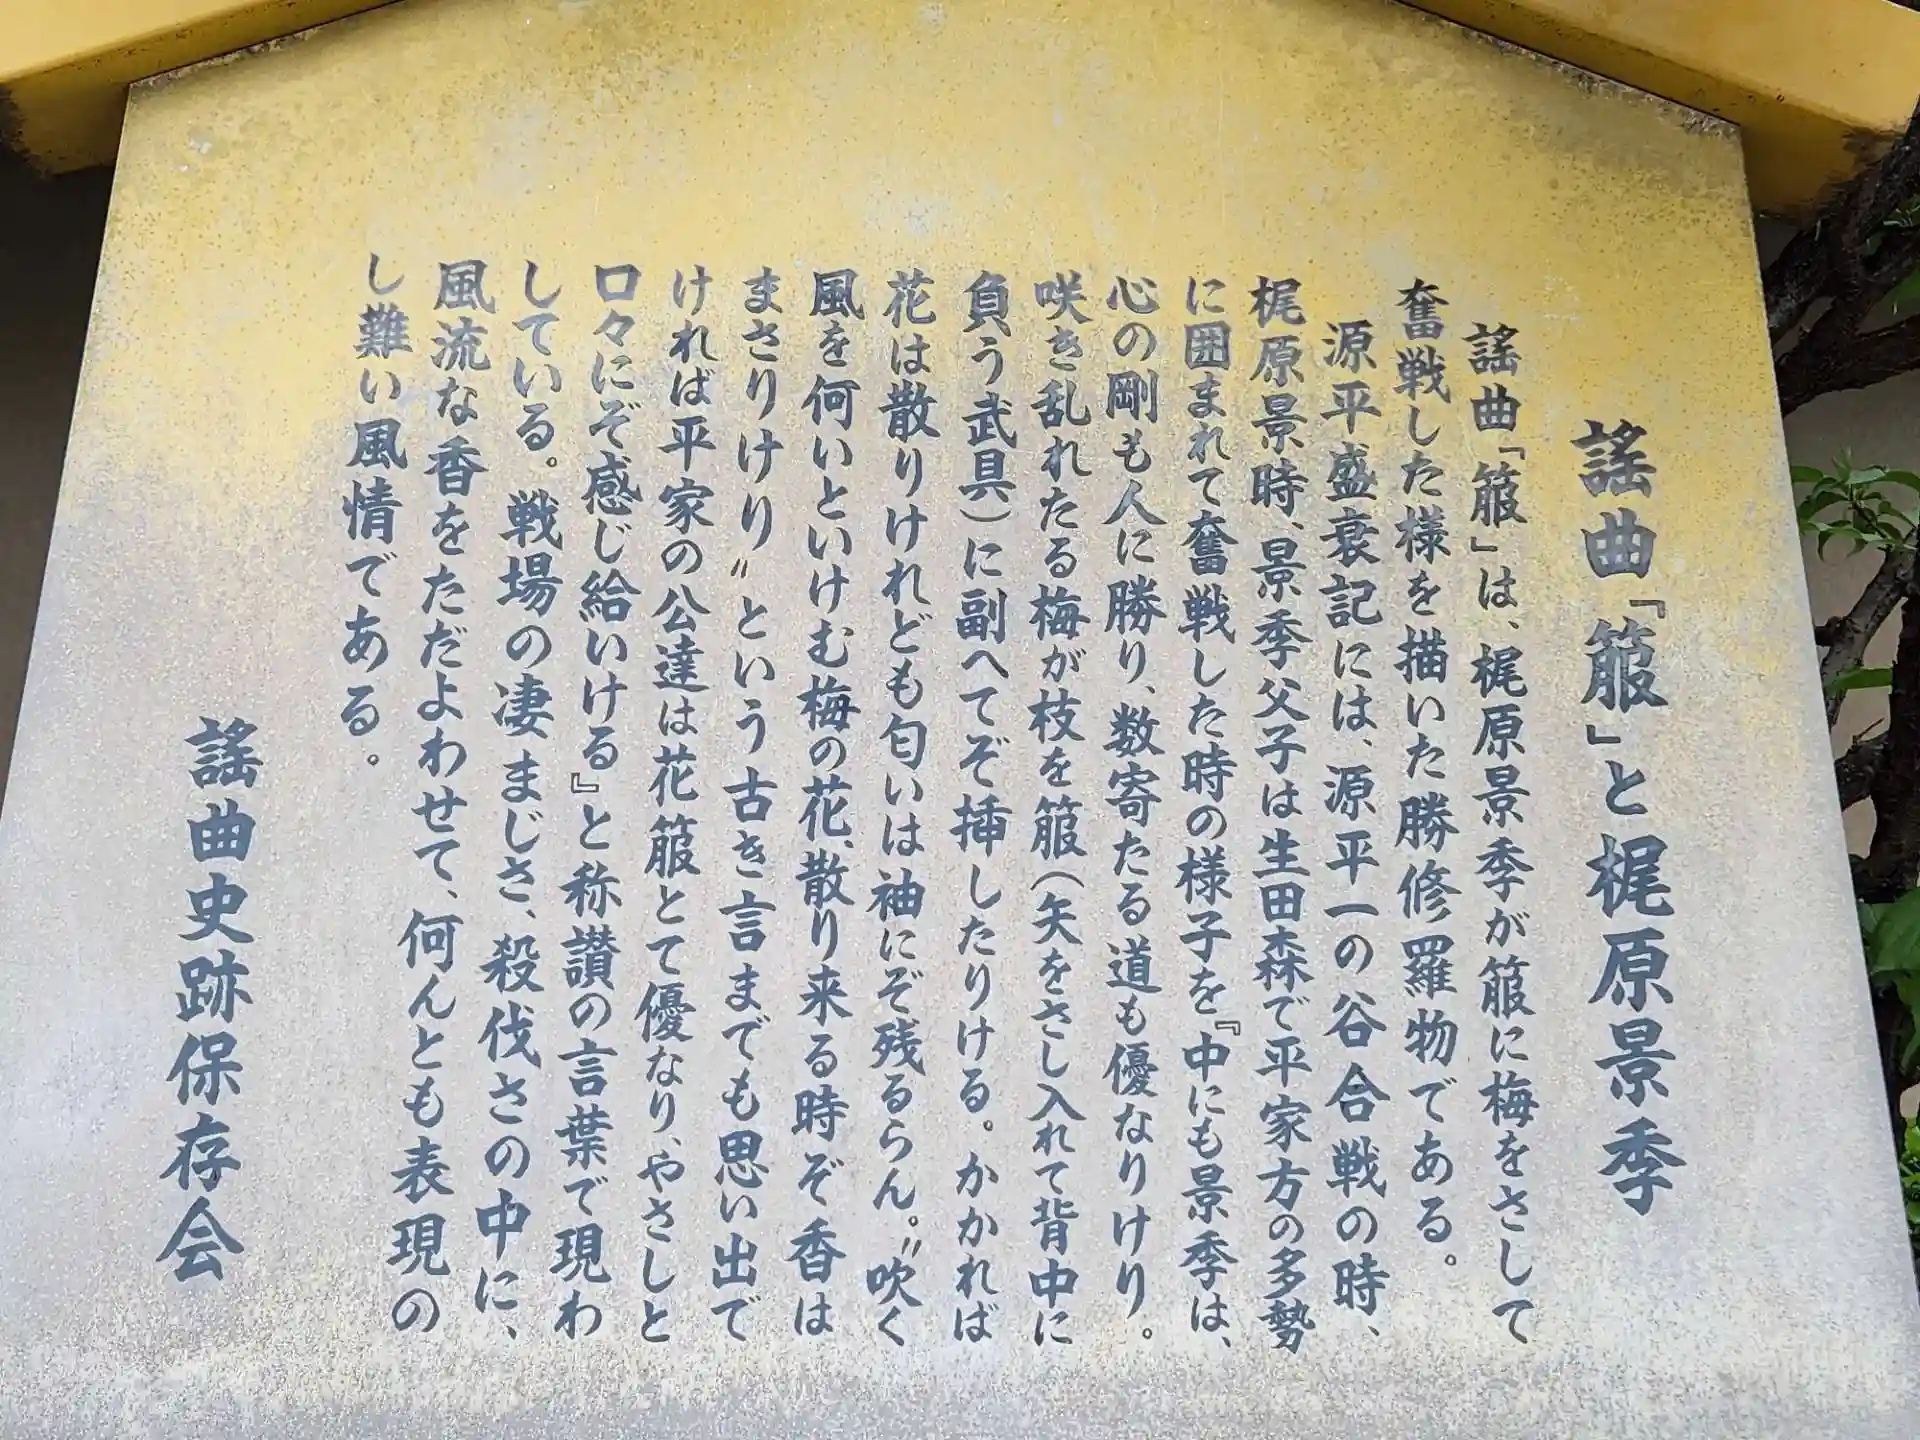 謡曲「箙」と梶原景季
謡曲「箙」は、梶原景季が箙に梅をさして
奮戦した様を描いた勝修羅物である。
源平盛衰記には、源平一の谷合戦の時、
梶原景時、景季父子は生田森で平家方の多勢
に囲まれて奮戦した時の様子を『中にも景季は、
心の剛も人に勝り、数寄たる道も優なりけり。
咲き乱れたる梅が枝を箙（矢をさし入れて背中に
負う武具）に副へてぞ挿したりける。かかれば
花は散りけれども匂いは袖にぞ残るらん。〝吹く
風を何いといけむ梅の花、散り来る時ぞ香は
まさりけり〟という古き言までも思い出で
ければ平家の公達は花箙とて優なり、やさしと
口々にぞ感じ給いける』と称讃の言葉で現わ
している。戦場の凄まじさ、殺伐さの中に、
風流な香をただよわせて、何んとも表現の
し難い風情である。
謡曲史跡保存会